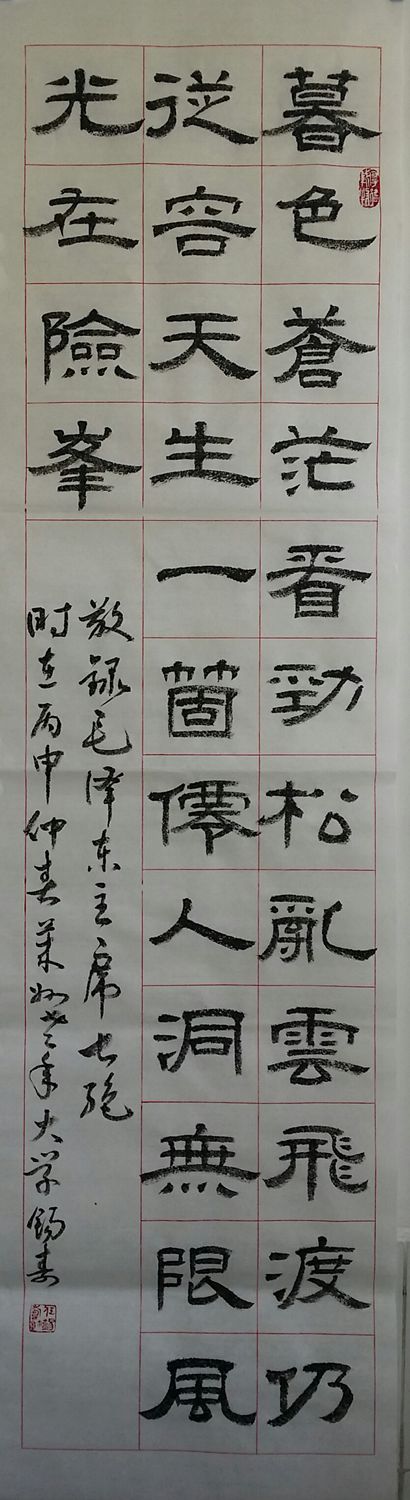 暮色蒼茫看勁松亂雲飛渡仍
從容天生一箇僊人洞無限風
光在險峯
敬録毛泽东主席七绝
时在丙申仲春莱州老年大学锡寿